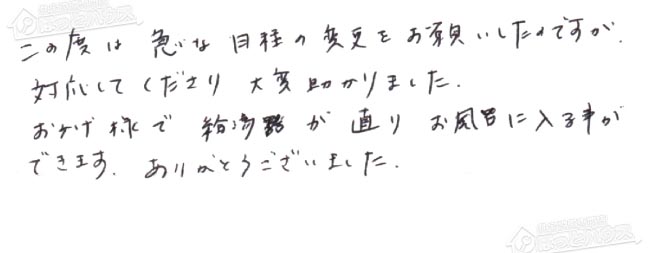 この度は 急な 日程の変更をお願いしたのですが、
対応してくださり 大変助かりました.
おかげ様で 給湯器が 直り お風呂に入る事が
できます. ありがとうございました.